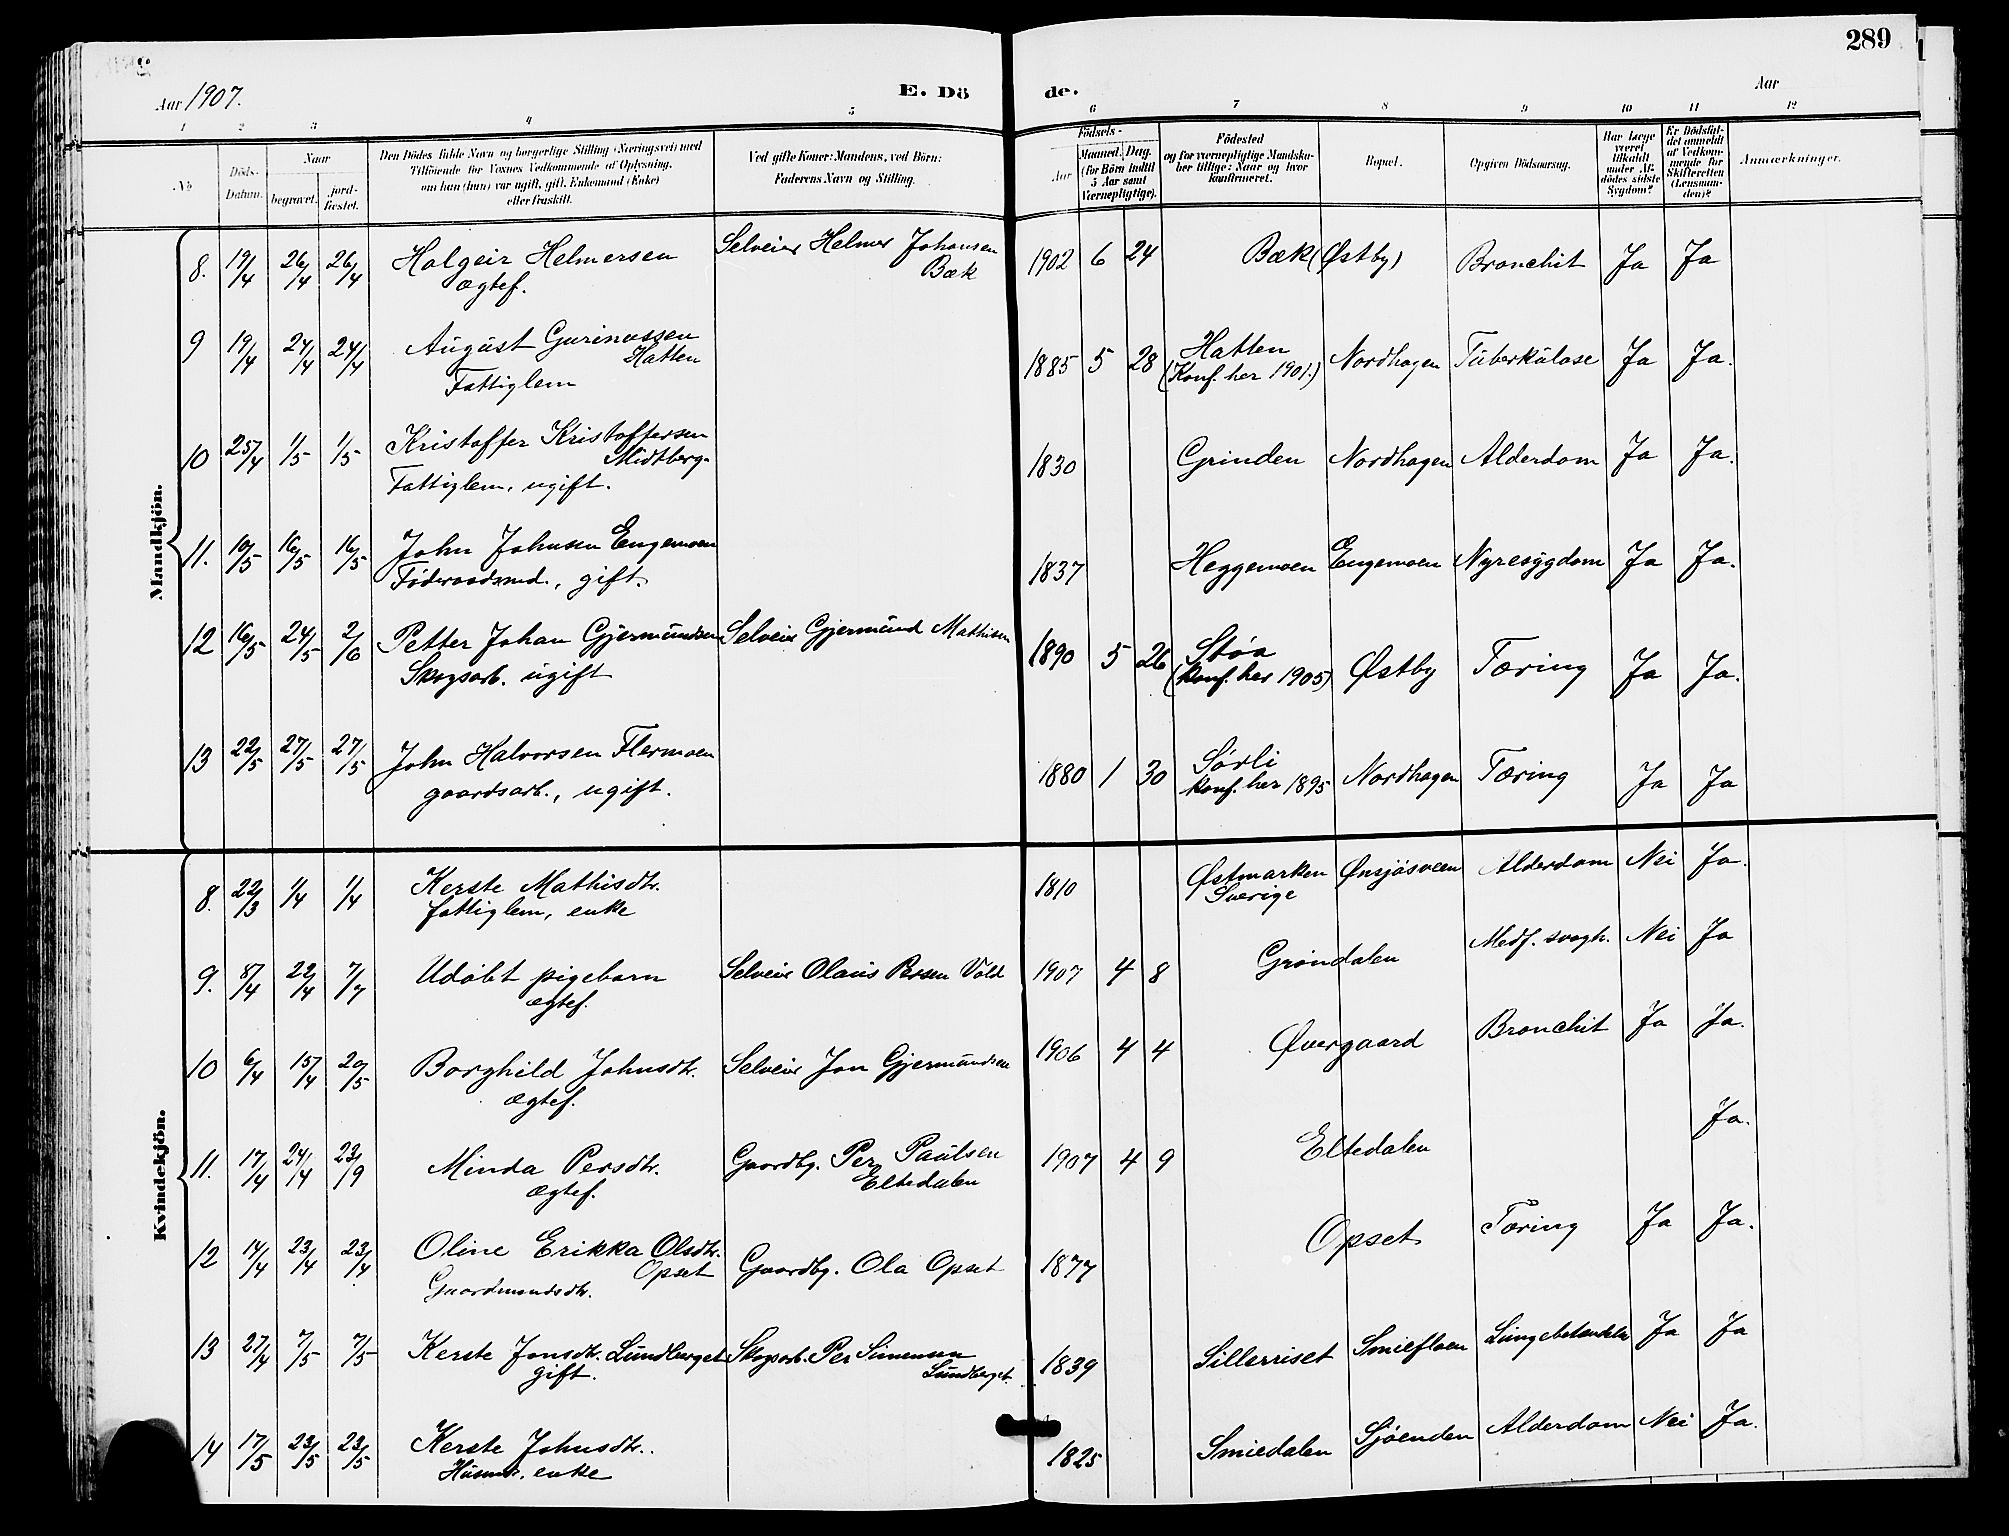 289
Aar 1907.
E. Dö
de.
Aar
1 2 3 4 5 6 7 8 9 10 11 12
No
Döds-Datum.
Naar
begravet.
jord-fæstet.
Den Dödes fulde Navn og borgerlige Stilling (Næringsvei) med
Tilföiende for Voxnes Vedkommende af Oplysning,
om han (hun) var ugift, gift, Enkemand (Enke)
eller fraskilt.
Ved gifte Koner: Mandens, ved Börn:
Faderens Navn og Stilling.
Födsels-
Aar
Maaned. Dag.
(for Börn indtil
5 Aar samt
Værnepligtige).
Födested
og for værnepligtige Mandsku-
ber tillige: Naar og hvor
konfirmeret.
Bopæl.
Opgiven Dödsaarsag.
Har læge
været
tilkaldt
under Af-
dödes sidste
Sygdom?
Er Dödsfal-
det anmeldt
af Vedkom-
mende for
Skifteretten
(Lensman-
den)?
Anmærkninger.
Mandkjön.
8. 19/4 26/4 26/4 Halgeir Helmersen Selveier Helmer Johansen 1902 6 24 Bæk (Østby) Bronchit Ja Ja
Ægtef. Bæk
9 19/4 24/4 24/4 August Gurinussen 1885 5 28 Hatten Nordhagen Tüberkülose Ja Ja.
Hatten (Konf. her 1901.)
Fattiglem
10 25/4 1/5 1/5 Kristoffer Kristoffersen 1830 Grinden Nordhagen Alderdom Ja Ja.
Midtberg.
Fattiglem, ugift.
11. 10/5 16/5 16/5 John Johnsen Engemoen 1837 Heggemoen Engemoen Nyresygdom Ja Ja.
Føderaadsmd., gift.
12 16/5 24/5 2/6 Petter Johan Gjermundsen Selveier Gjermund Mathisen 1890 5 26 Støa Østby Tæring Ja Ja.
Skogsarb. ugift (Konf. her 1905)
13 22/5 27/5 27/5 John Halvorsen Flermoen 1880 1 30 Sørli Nordhagen Tæring Ja Ja
gaardsarb., ugift. Konf. her 1895
Kvindekjön.
8. 22/3 1/4 1/4 Kerste Mathisdtr. 1810 Østmarken Ønsjøsveen Alderdom Nei Ja.
fattiglem, enke Sverige
9. 8/4 22/4 7/7 Udøbt pigebarn Selveier Olaus Persen Vold 1907 4 8 Grøndalen Medf. svagh. Nei Ja
ægtef.
10 6/4 15/4 20/5 Borghild Johnsdtr. Selveier Jon Gjermundsen 1906 4 4 Øvergaard Bronchit Ja Ja.
Ægtef.
11. 17/4 24/4 23/9 Minda Persdtr. Gaardbg. Per Paulsen 1907 4 9 Eltedalen Ja.
Ægtef. Eltedalen
12 14/4 23/4 23/4 Oline Erikka Olsdtr. Gaardbg. Ola Opset 1877 Opset Tæring Ja Ja.
Opset
Gaardmandsdtr.
13 27/4 7/5 7/5 Kerste Jonsdtr. Lundberget Skogsarb. Per Simensen 1839 Sillerriset Smiefloen Lungebetændelse Ja Ja
gift. Lundberget.
14 17/5 23/5 23/5 Kerste Johnsdtr. 1825 Smiedalen Sjøenden Alderdom Nei Ja.
enke